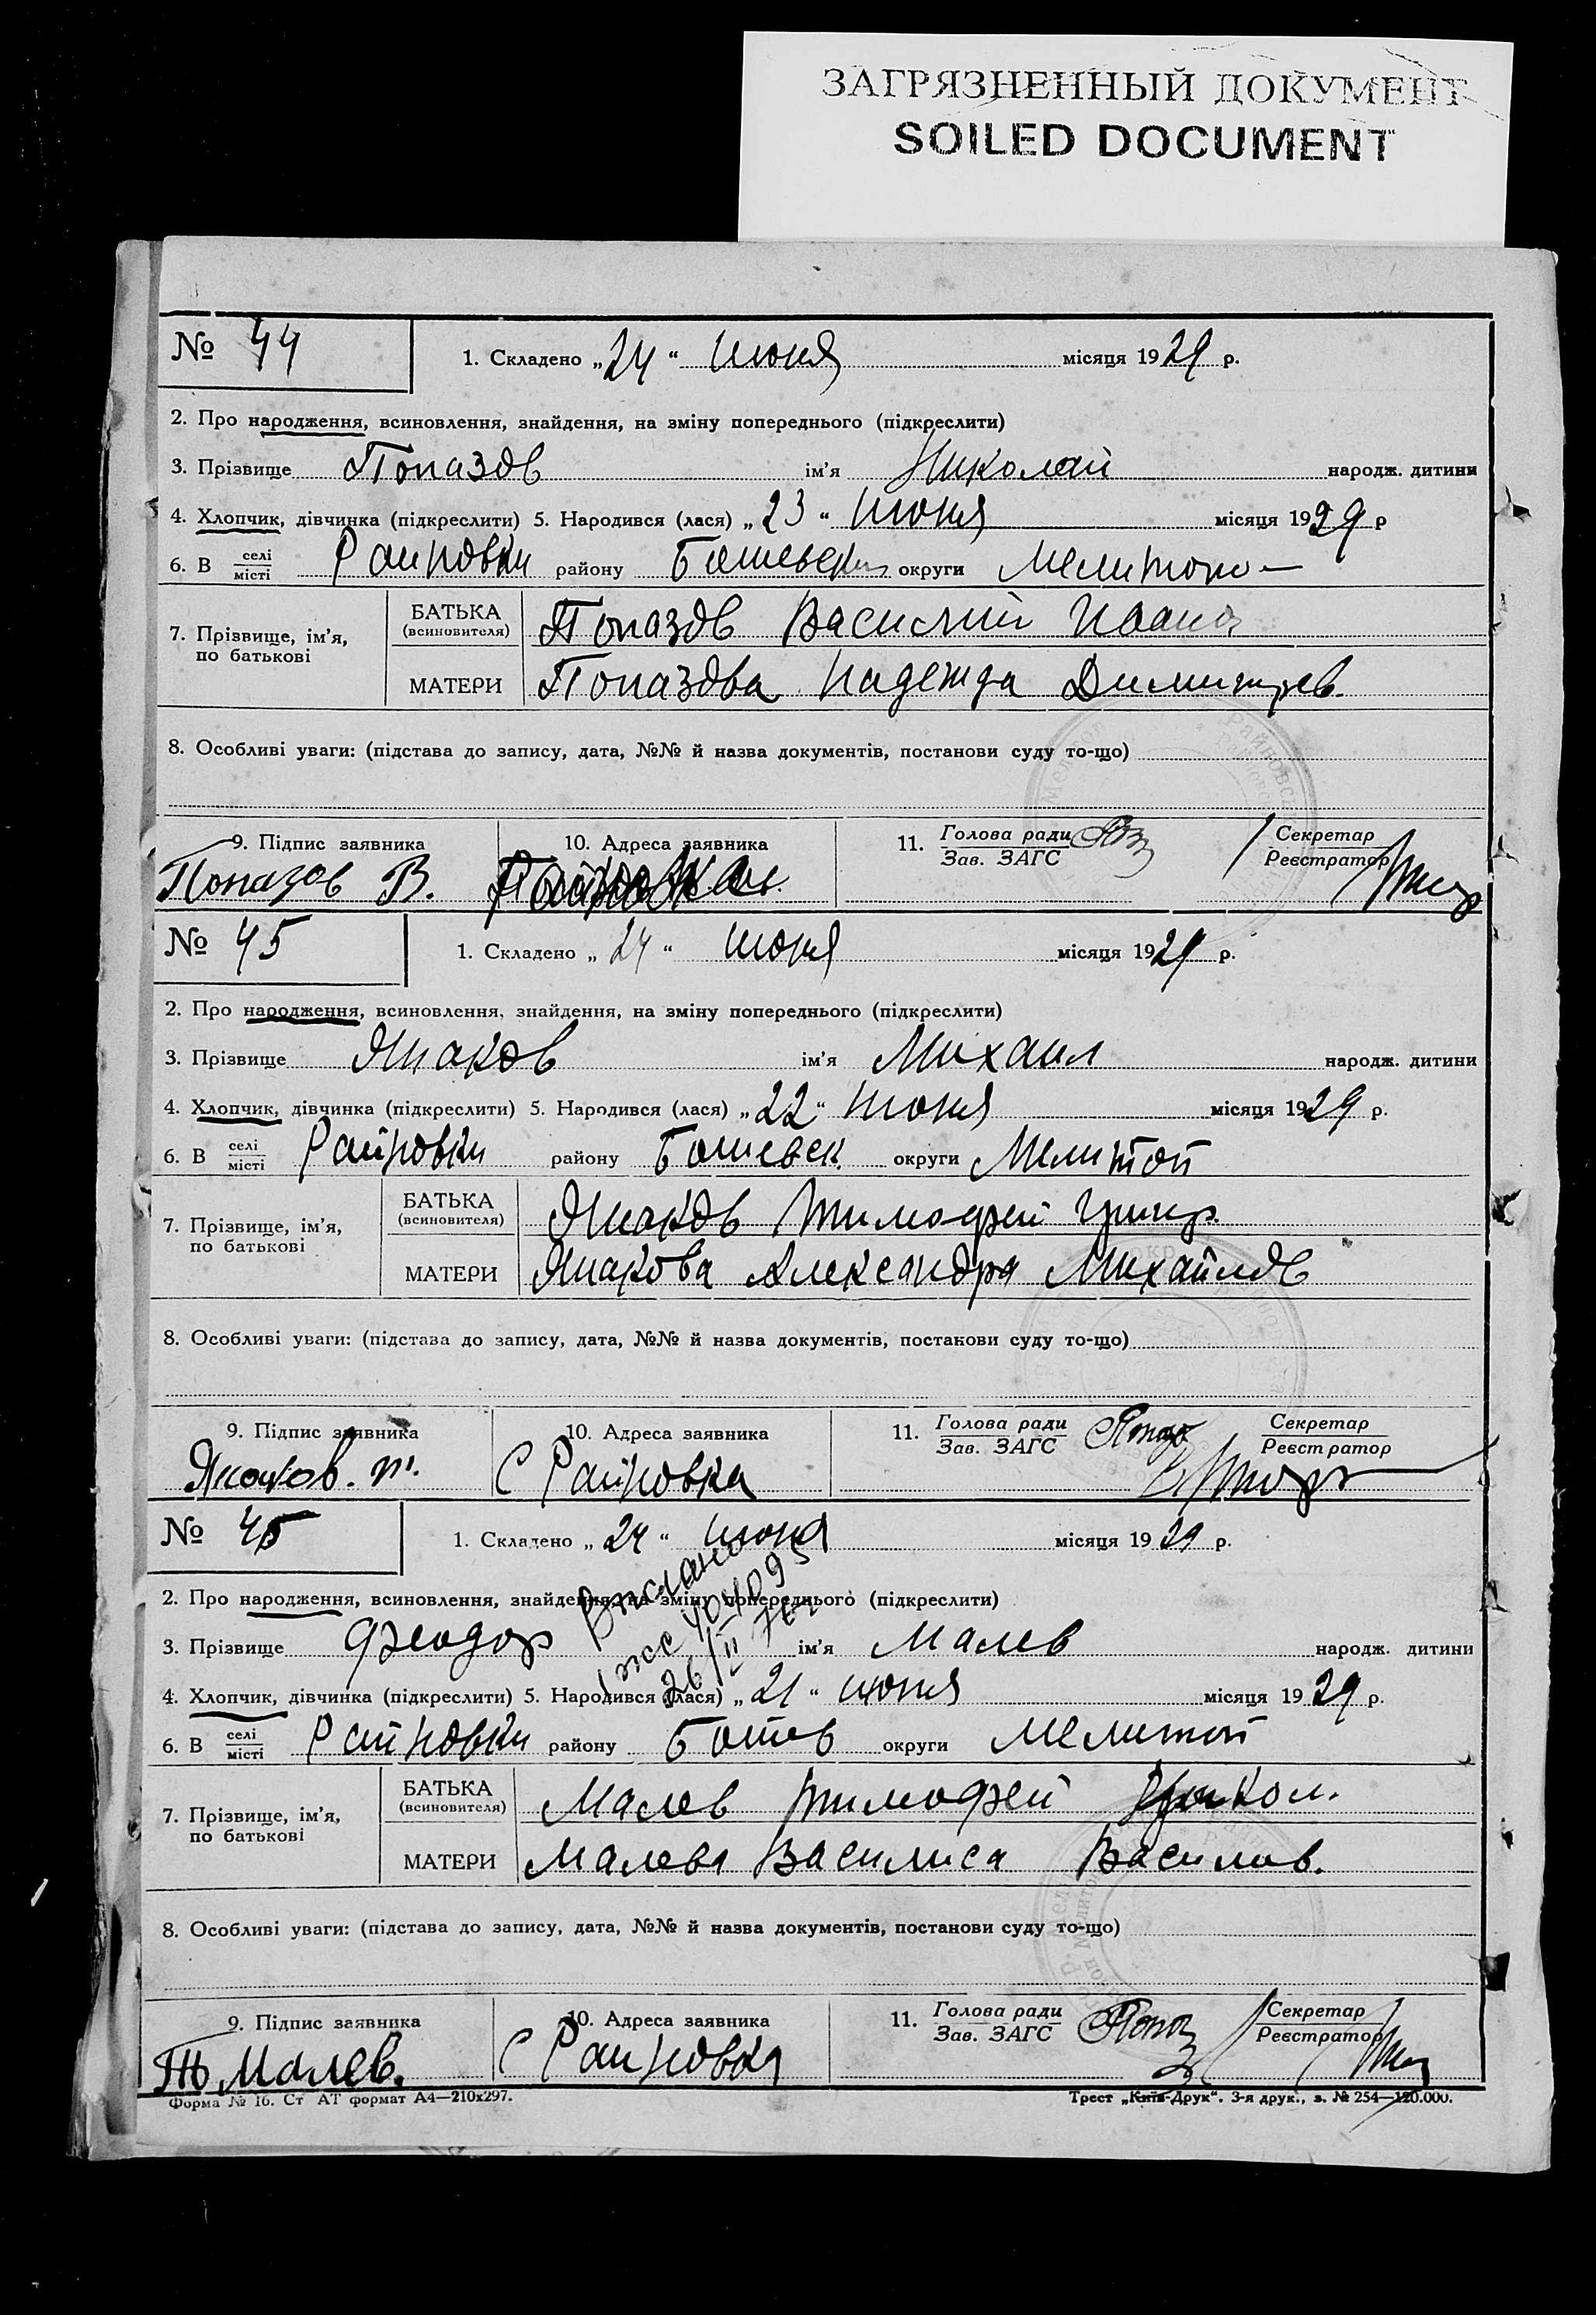 ЗАГРЯЗНЕННЫЙ ДОКУМЕНТ
SOILED DOCUMENT
№ 44 1. Складено „24“ июня місяця 1929 р.
2. Про народження, всиновлення, знайдення, на зміну попереднього (підкреслити)
3. Прізвище Попазов ім’я Николай народж. дитини
4. Хлопчик, дівчинка (підкреслити) 5. Народився (лася) „23“ июня місяця 1929 р
6. В селі місті Райновки району округи
7. Прізвище, ім’я, по батькові БАТЬКА (всиновителя) Попазов Василий Иван
МАТЕРИ Попазова Надежда Димитрев.
8. Особливі уваги: (підстава до запису, дата, №№ й назва документів, постанови суду то-що)
9. Підпис заявника 10. Адреса заявника 11. Голова ради Зав. ЗАГС Секретар Реєстратор
Попазов В.
№ 45 1. Складено „24“ июня місяця 1929 р.
2. Про народження, всиновлення, знайдення, на зміну попереднього (підкреслити)
3. Прізвище Янаков ім’я Михаил народж. дитини
4. Хлопчик, дівчинка (підкреслити) 5. Народився (лася) „22“ июня місяця 1929 р.
6. В селі місті Райновки району округи Мелитоп
7. Прізвище, ім’я, по батькові БАТЬКА (всиновителя) Янаков Тимофей
МАТЕРИ Янакова Александра Михайлов
8. Особливі уваги: (підстава до запису, дата, №№ й назва документів, постанови суду то-що)
9. Підпис заявника 10. Адреса заявника 11. Голова ради Зав. ЗАГС Секретар Реєстратор
Янаков. т. С Райновка
№ 45 1. Складено „24“ июня місяця 1929 р.
2. Про народження, всиновлення, знайдення, на зміну попереднього (підкреслити)
3. Прізвище Феодор ім’я Малев народж. дитини
4. Хлопчик, дівчинка (підкреслити) 5. Народився (лася) „21“ июня місяця 1929 р.
6. В селі місті Райновки району округи Мелитоп
7. Прізвище, ім’я, по батькові БАТЬКА (всиновителя) Малев Тимофей
МАТЕРИ Малева Василиса Василив.
8. Особливі уваги: (підстава до запису, дата, №№ й назва документів, постанови суду то-що)
9. Підпис заявника 10. Адреса заявника 11. Голова ради Зав. ЗАГС Секретар Реєстратор
Малев. С Райновка
Форма № 16. Ст АТ формат А4—210х297. Трест „Київ-Друк“. 3-я друк., з. № 254—120.000.